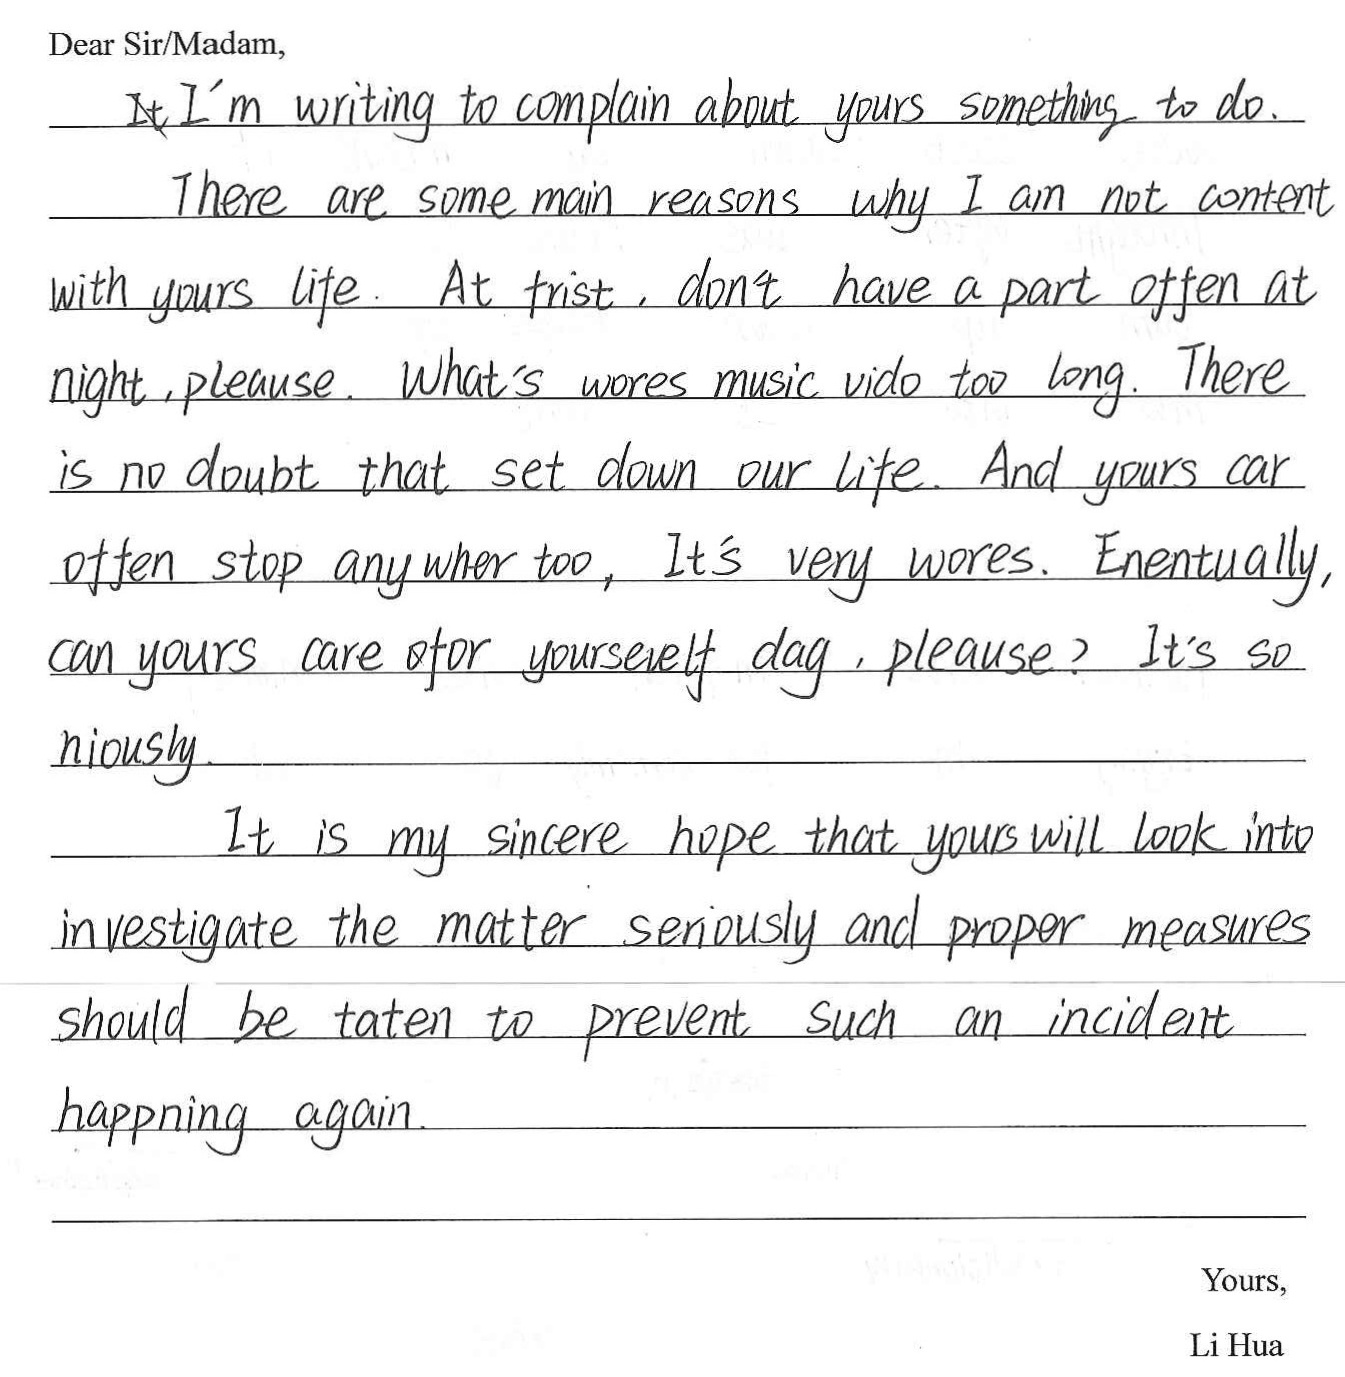 Dear Sir/Madam,
It I'm writing to complain about yours something to do.
There are some main reasons why I am not content
with yours life. At frist, don't have a part offen at
night, pleause. What's wores music vido too long. There
is no doubt that set down our life. And yours car
offen stop anywher too, It's very wores. Enentually,
can yours care ofor yourself dag, pleause? It's so
niously.
It is my sincere hope that yours will look into
investigate the matter seriously and proper measures
should be taten to prevent such an incident
happning again.
Yours,
Li Hua